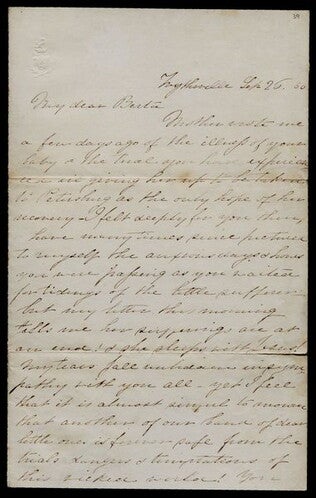 39
Wytheville Sept 26. 60
My dear Bertie
Mother wrote me
a few days ago of the illness of your
baby & the trial you have experien
ced in giving her up to be taken
to Petersburg as the only hope of her
recovery - I felt deeply for you then,
& have many times since pictured
to myself the anxious days & hours
you were passing as you waited
for tidings of the little sufferer
but my letter this morning
tells me her sufferings are at
an end! & she sleeps with Jesus!
My tears fall unbidden in sym
pathy with you all - yet I feel
that it is almost sinful to mourn
that another of our band of dear
little ones is forever safe from the
trials dangers & temptations of
this wicked world! You